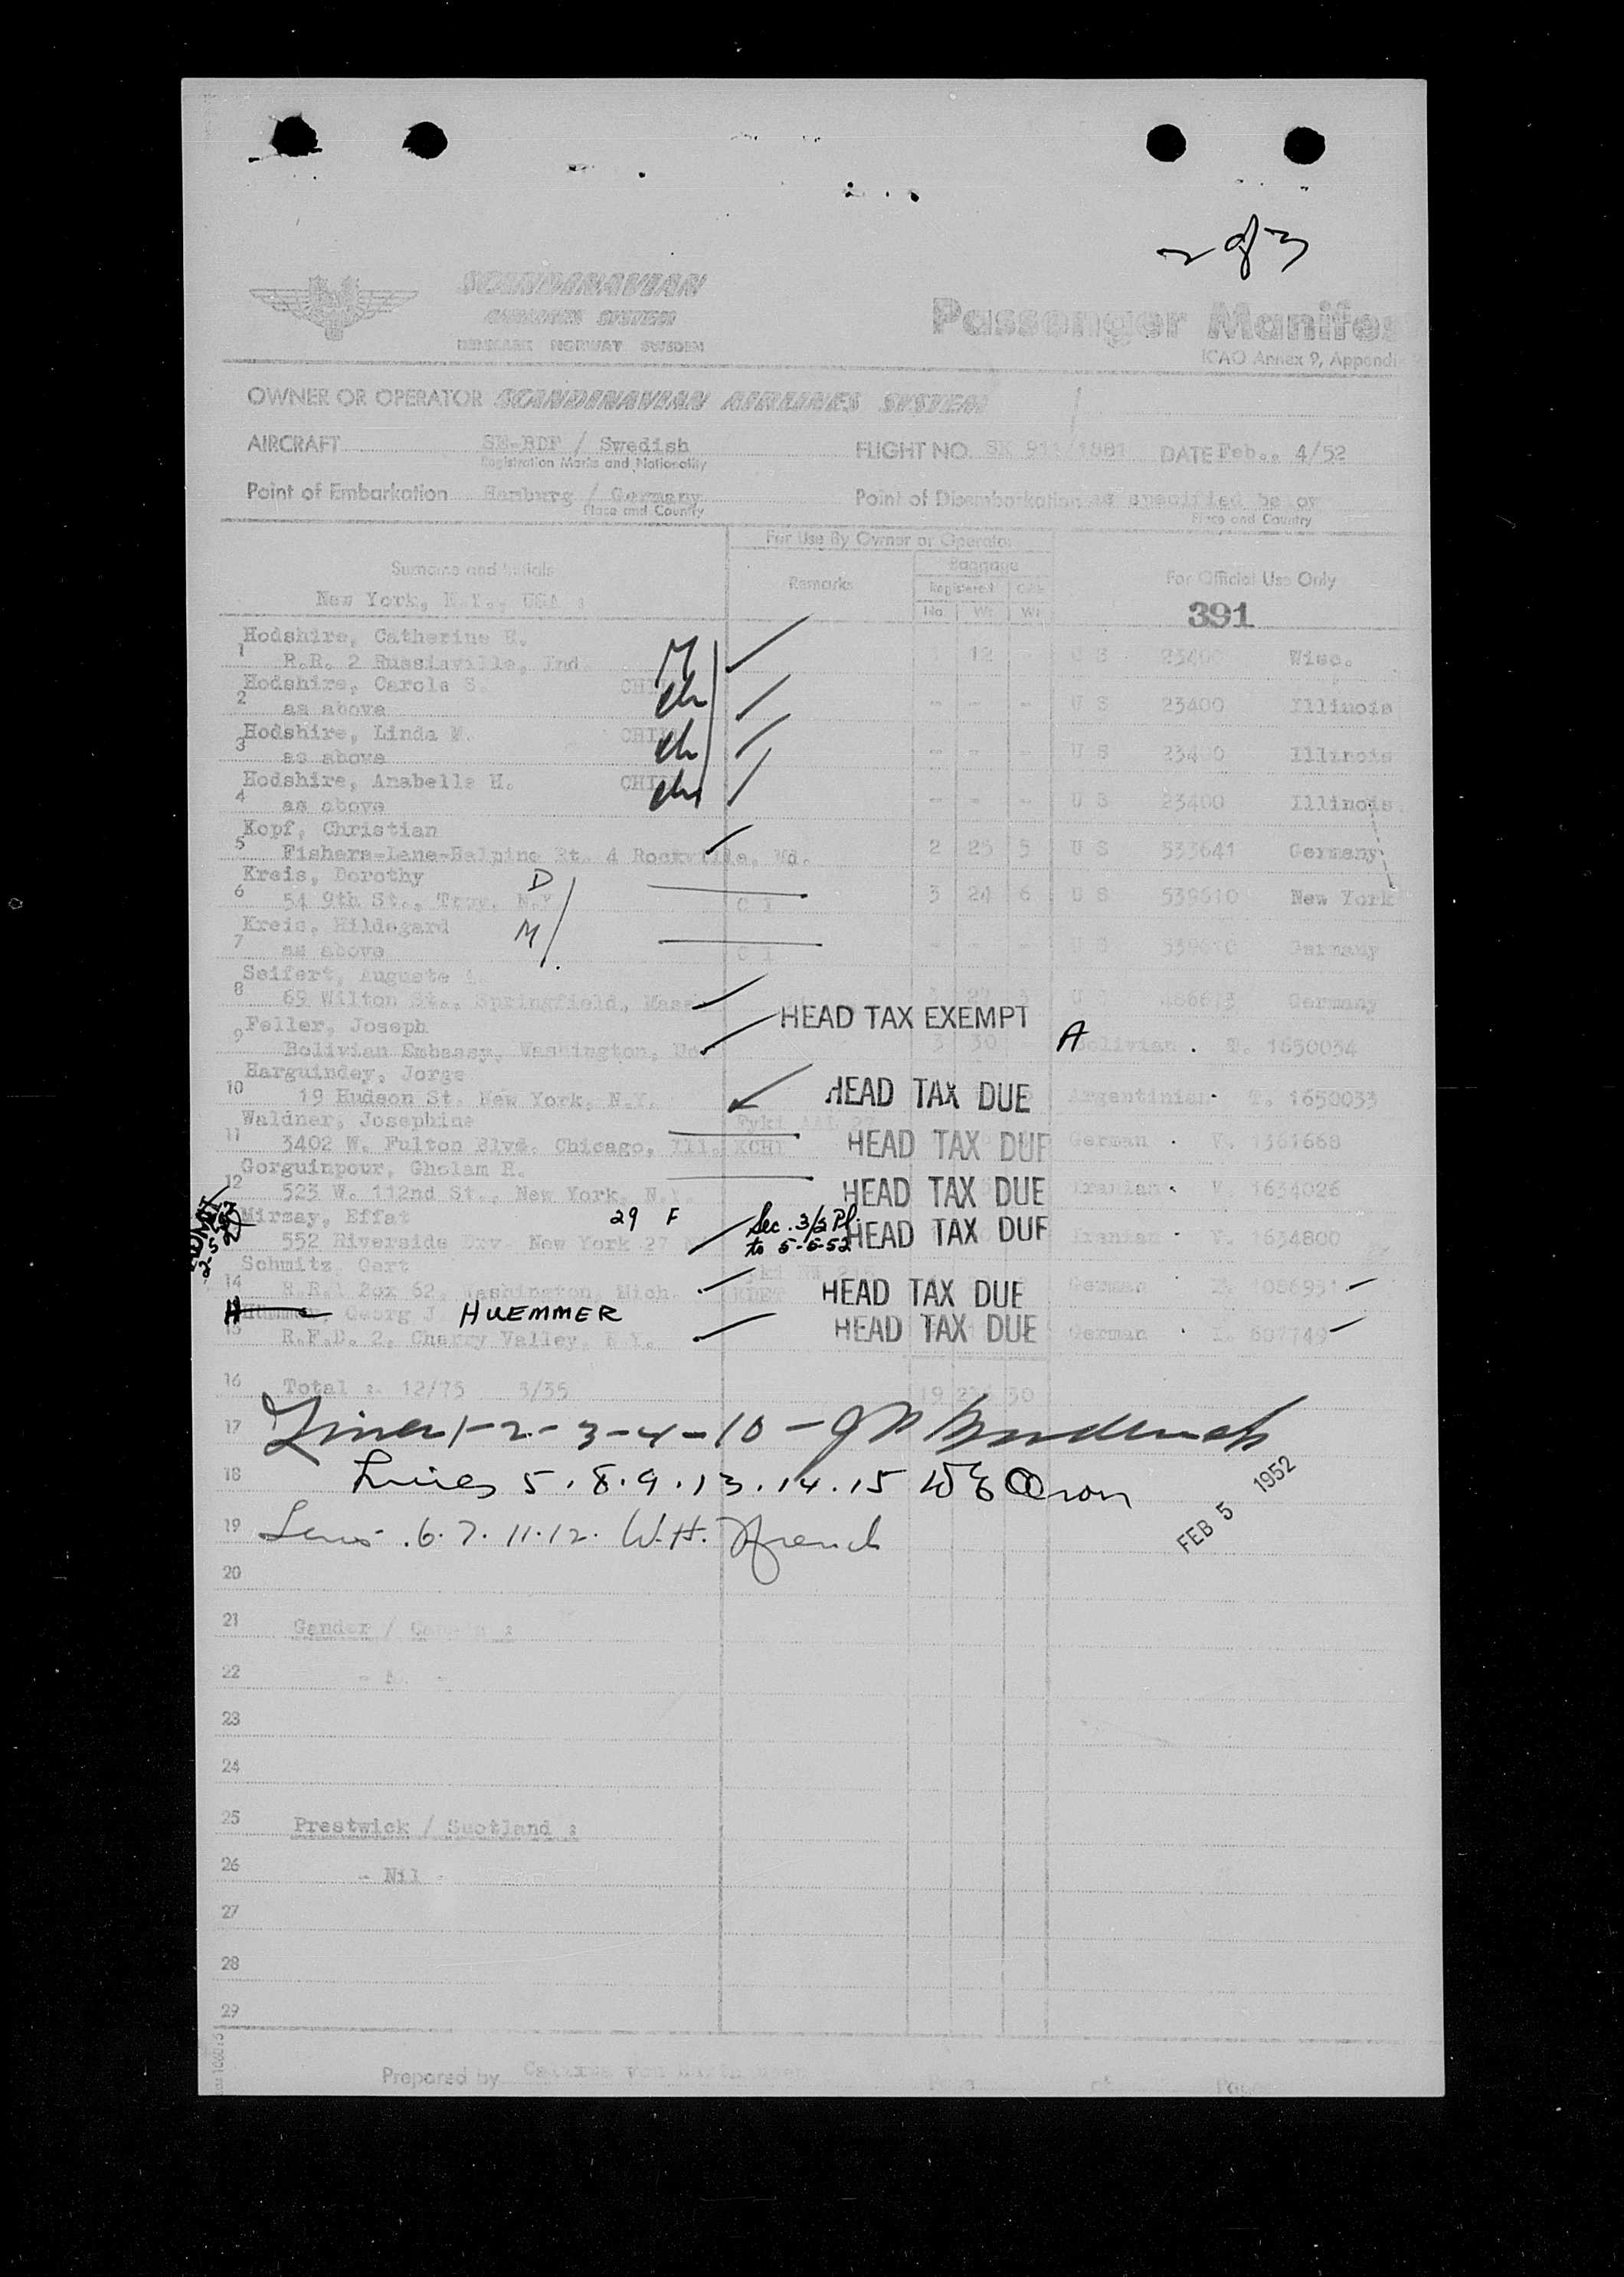 2 of 3
SCANDINAVIAN
AIRLINES SYSTEM
DENMARK NORWAY SWEDEN
Passenger Manifes
ICAO Annex 9, Appendi
OWNER OR OPERATOR SCANDINAVIAN AIRLINES SYSTEM
AIRCRAFT SE-BDF / Swedish FLIGHT NO. SK 911/1881 DATE Feb.. 4/52
Registration Marks and Nationality
Point of Embarkation Hamburg / Germany Point of Disembarkation as specified be ow
Place and Country Place and Country
For Use By Owner or Operator
Surname and Initials Remarks Baggage For Official Use Only
Registered Cabin
New York, N.Y., USA : No. Wt Wt 391
Hodshire, Catherine H. M
1 R.R. 2 Russiaville, Ind. 12 - U S 23400 Wisc.
Hodshire, Carole S. CHI ch
2 as above - - - U S 23400 Illinois
Hodshire, Linda M. CHI ch
3 as above - - - U S 23400 Illinois
Hodshire, Anabelle H. CHI ch
4 as above - - - U S 23400 Illinois
Kopf, Christian
5 Fishers-Lane-Halpine Rt. 4 Rockville, Md. 2 25 5 U S 533641 Germany
Kreis, Dorothy D
6 54 9th St., Troy, N.Y. C I 3 24 6 U S 539610 New York
Kreis, Hildegard M
7 as above C I - - - S 539610 Germany
Seifert, Auguste A.
8 69 Wilton St., Springfield, Mass. 27 U S 486673 Germany
Feller, Joseph HEAD TAX EXEMPT
9 Bolivian Embassy, Washington, 3 30 A Bolivian . T. 1650034
Harguindey, Jorge
10 19 Hudson St. New York, N.Y. HEAD TAX DUE Argentinian . T. 1650033
Waldner, Josephine
11 3402 W. Fulton Blvd. Chicago, Ill. KCHI HEAD TAX DUE German . V. 1361668
Gorguinpour, Gholam H.
12 523 W. 112nd St., New York, N.Y. HEAD TAX DUE Iranian . V. 1634026
Mirsay, Effat 29 F Sec. 3/2 Pl.
552 Riverside Drv. New York 27 to 5-5-52 HEAD TAX DUE Iranian . V. 1634800
Schmitz, Gert
14 R.R.1 Box 62, Washington, Mich. HEAD TAX DUE German I. 1086931
Georg J HUEMMER
15 R.F.D. 2, Cherry Valley, N.Y. HEAD TAX DUE German . I. 607749
16 Total :. 12/75 3/35 19 50
17 Lines 1-2-3-4-10 -
18 Lines 5.8.9.13.14.15
FEB 5 1952
19 Lines .6.7.11.12. W.H. French
20
21 Gander / Canada :
22
23
24
25 Prestwick / Scotland :
26 - Nil -
27
28
29
Prepared by
Page of Pages